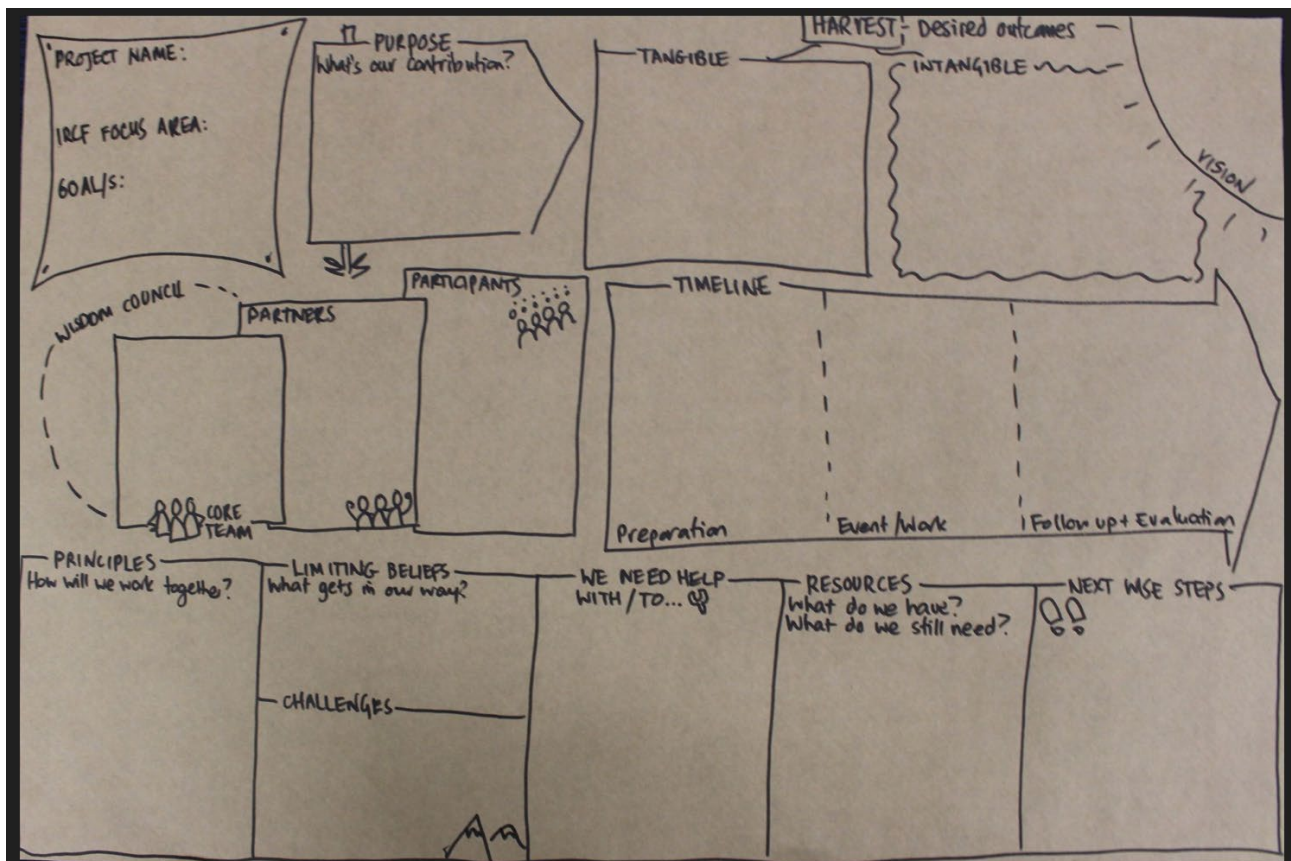 PROJECT NAME:
IRCF FOCUS AREA:
GOAL/S:
PURPOSE
What's our contribution?
HARVEST - Desired outcomes
TANGIBLE
INTANGIBLE
VISION
WISDOM COUNCIL
CORE
TEAM
PARTNERS
PARTICIPANTS
TIMELINE
Preparation
Event/Work
Follow up + Evaluation
PRINCIPLES
How will we work together?
LIMITING BELIEFS
What gets in our way?
CHALLENGES
WE NEED HELP
WITH/TO...
RESOURCES
What do we have?
What do we still need?
NEXT WISE STEPS